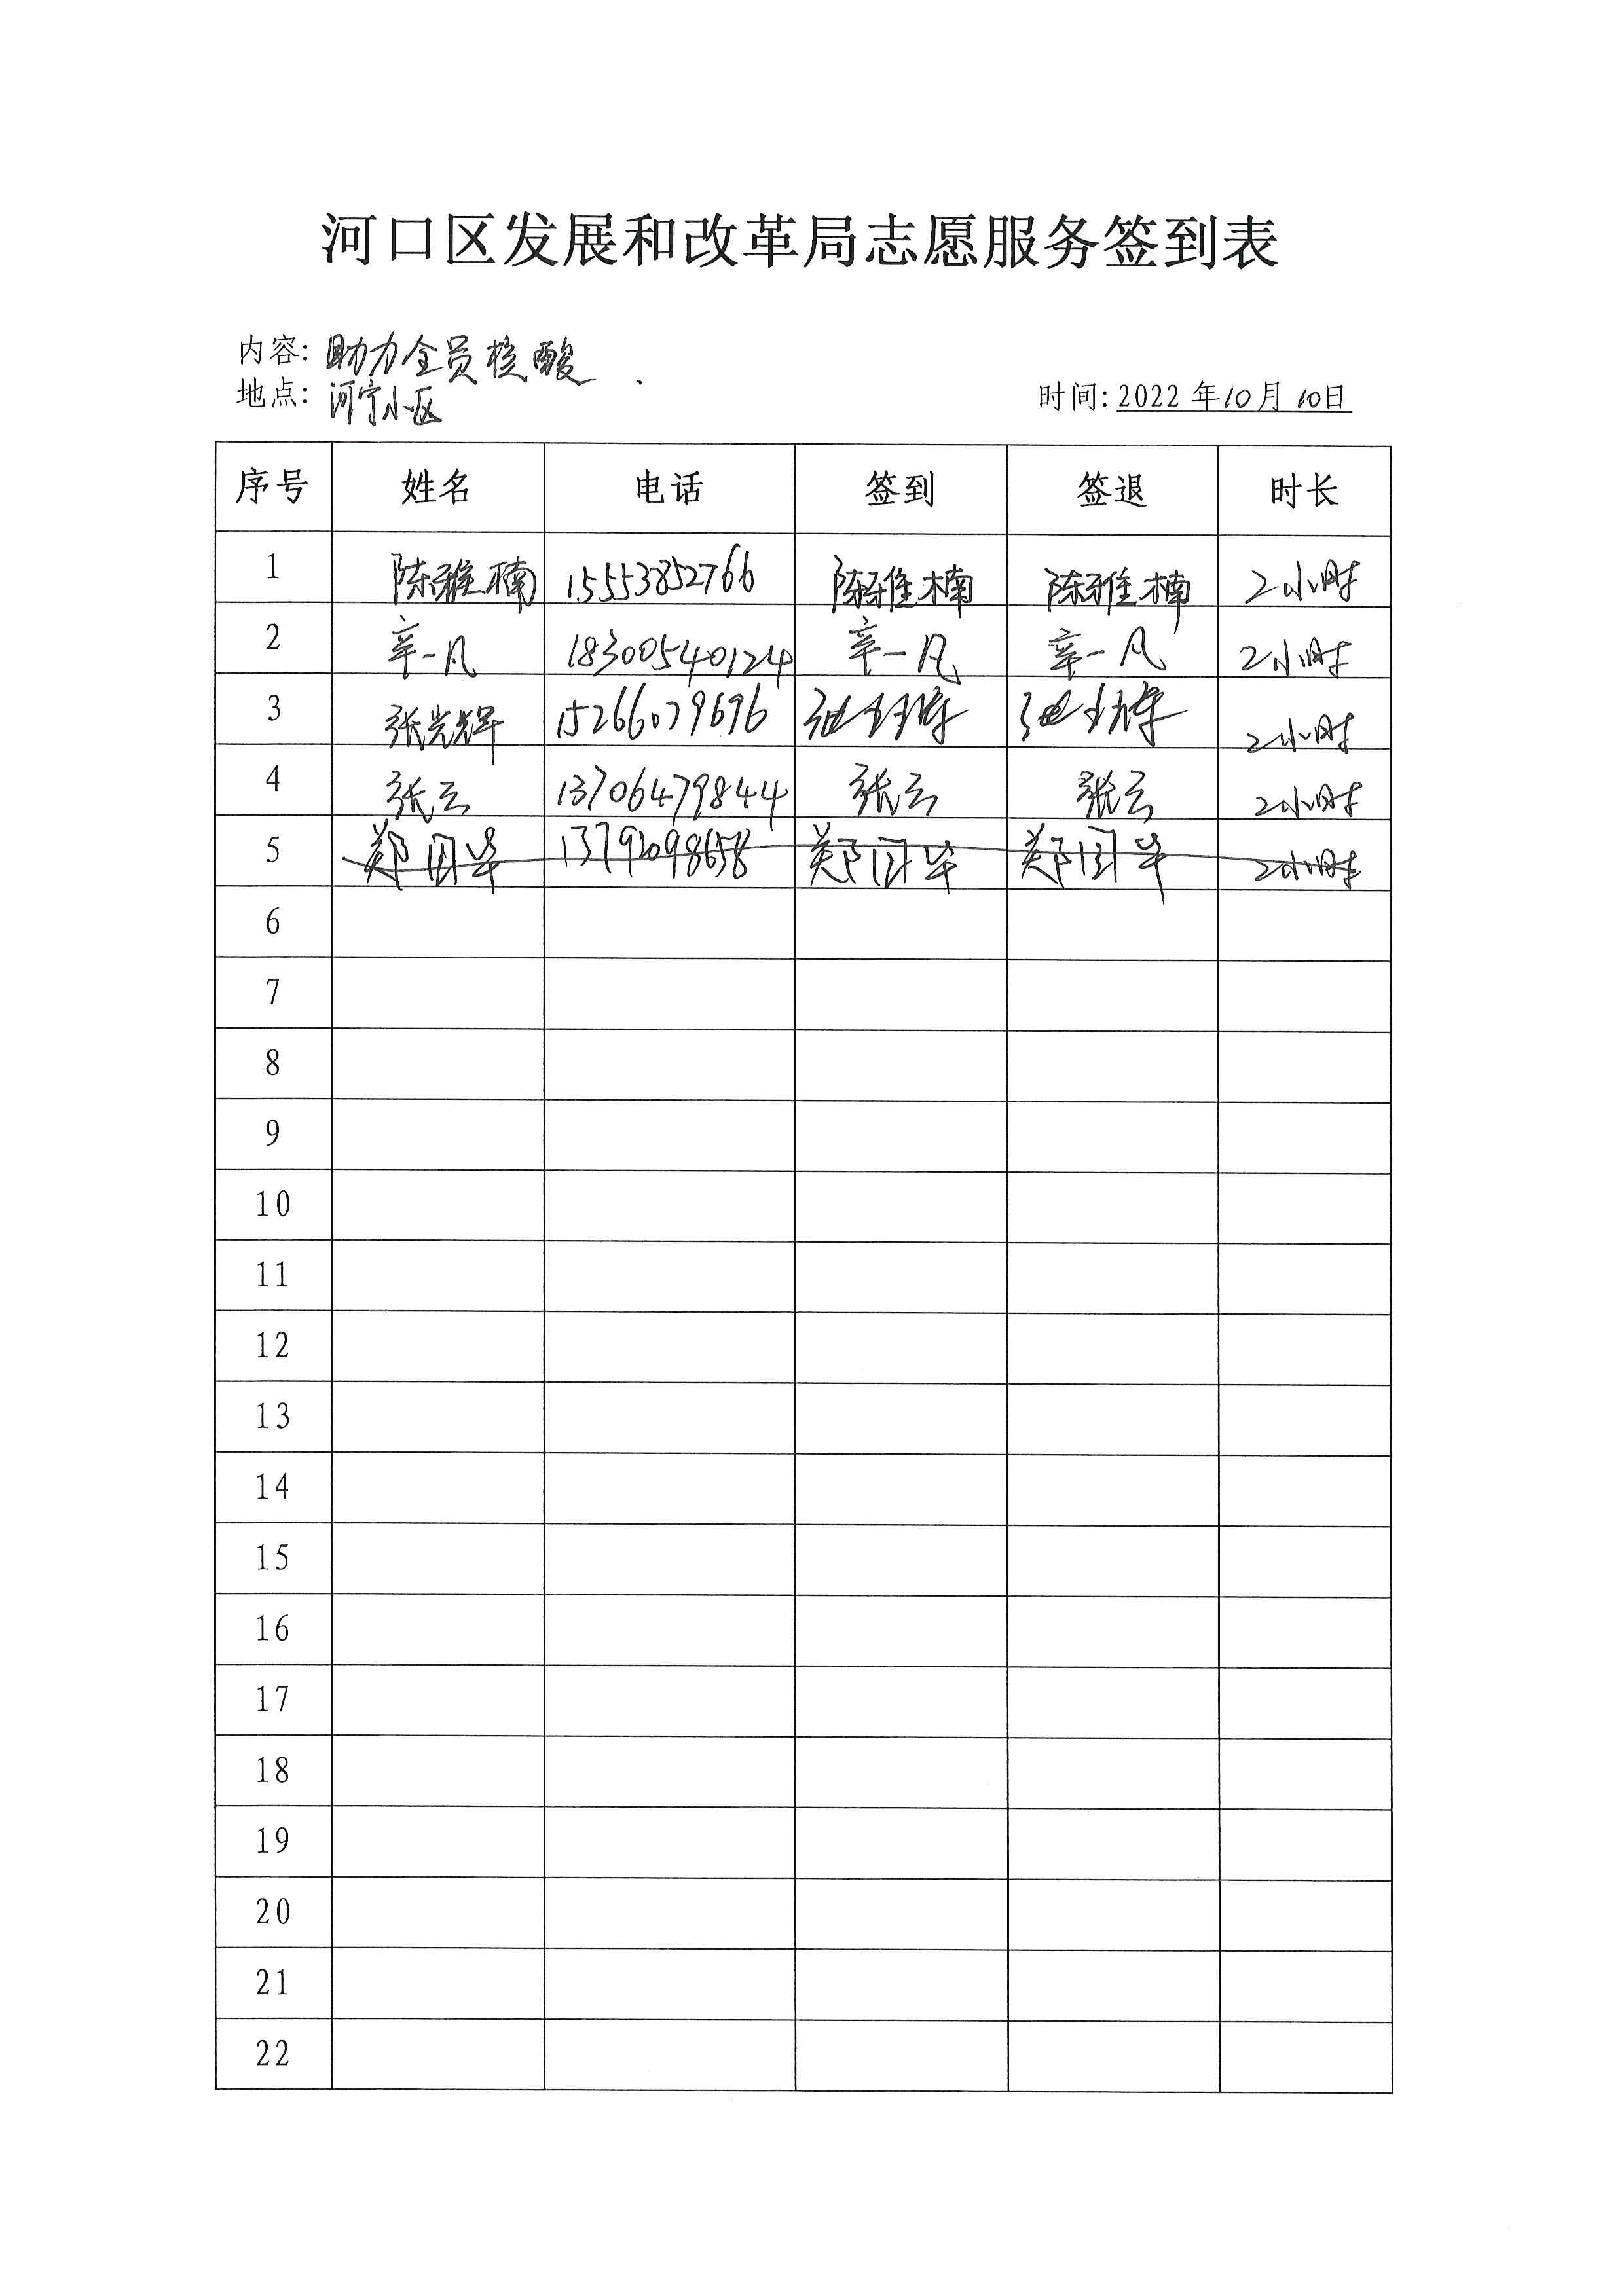 河口区发展和改革局志愿服务签到表
内容: 助力全员核酸
地点: 河宁小区 时间: 2022年10月10日
序号 姓名 电话 签到 签退 时长
1 陈雅楠 15553852766 陈雅楠 陈雅楠 2小时
2 辛一凡 18300540124 辛一凡 辛一凡 2小时
3 张光辉 15266079696 张光辉 张光辉 2小时
4 张云 13706479844 张云 张云 2小时
5 郑国华 13792098658 郑国华 郑国华 2小时
6
7
8
9
10
11
12
13
14
15
16
17
18
19
20
21
22